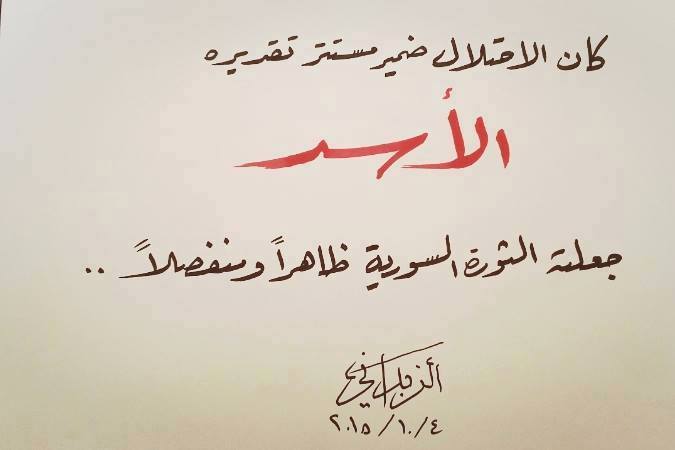 كان الاحتلال ضمير مستتر تقديره
الأسد
جعلته الثورة السورية ظاهراً ومنفصلاً ..
٢٠١٥/١٠/٤